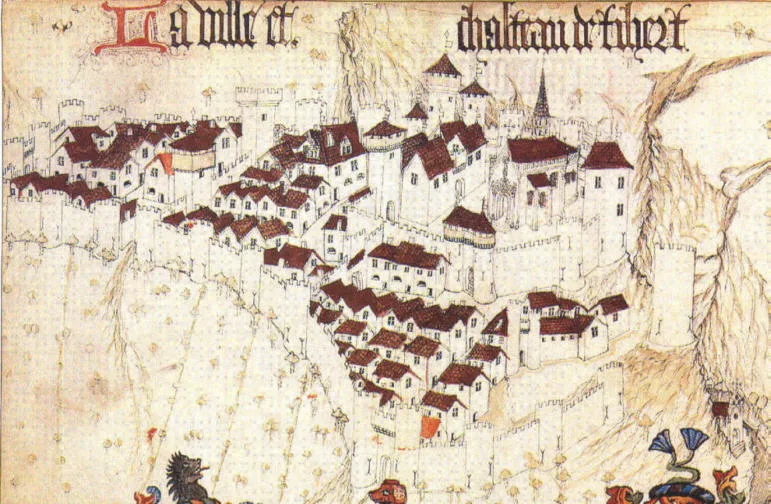 La ville et. chasteau de tihert.